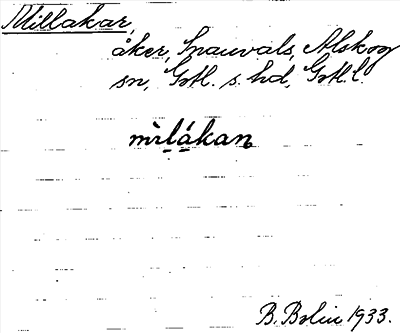 Millakar,
åker, Snauvals, Alskog
sn, Gotl. s. hd, Gotl. l.
mìrlákan
B. Bolin 1933.